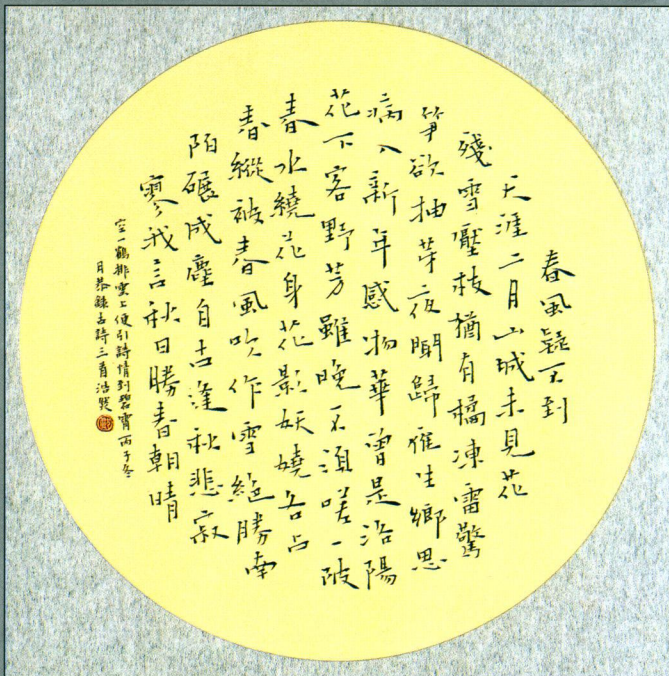 春風疑不到
天涯二月山城未見花
殘雪壓枝猶有橘凍雷驚
笋欲抽芽夜聞歸雁生鄉思
病入新年感物華曾是洛陽
花下客野芳雖晚不須嗟一陂
春水繞花身花影妖嬈各占
春縱被春風吹作雪絕勝南
陌碾成塵自古逢秋悲寂
寥我言秋日勝春朝晴
空一鶴排雲上便引詩情到碧霄丙子冬
月恭錄古詩三首浩